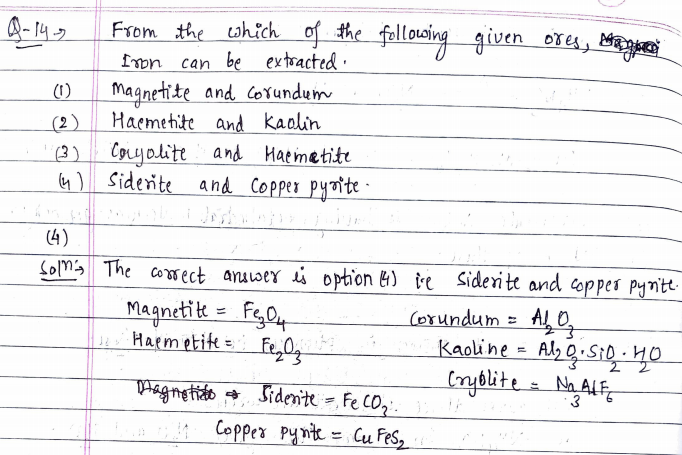 Q-14→ From the which of the following given ores,
Iron can be extracted.
(1) Magnetite and Corundum
(2) Haemetite and Kaolin
(3) Coryolite and Haematite
(4) Siderite and Copper pyrite.
(4)
Solⁿ:→ The correct answer is option (4) i.e Siderite and copper pyrite.
Magnetite = Fe₃O₄ Corundum = Al₂O₃
Haemetite = Fe₂O₃ Kaoline = Al₂O₃·SiO₂·H₂O
Cryolite = Na₃AlF₆
Magnetite ⇒ Siderite = FeCO₃.
Copper pyrite = CuFeS₂